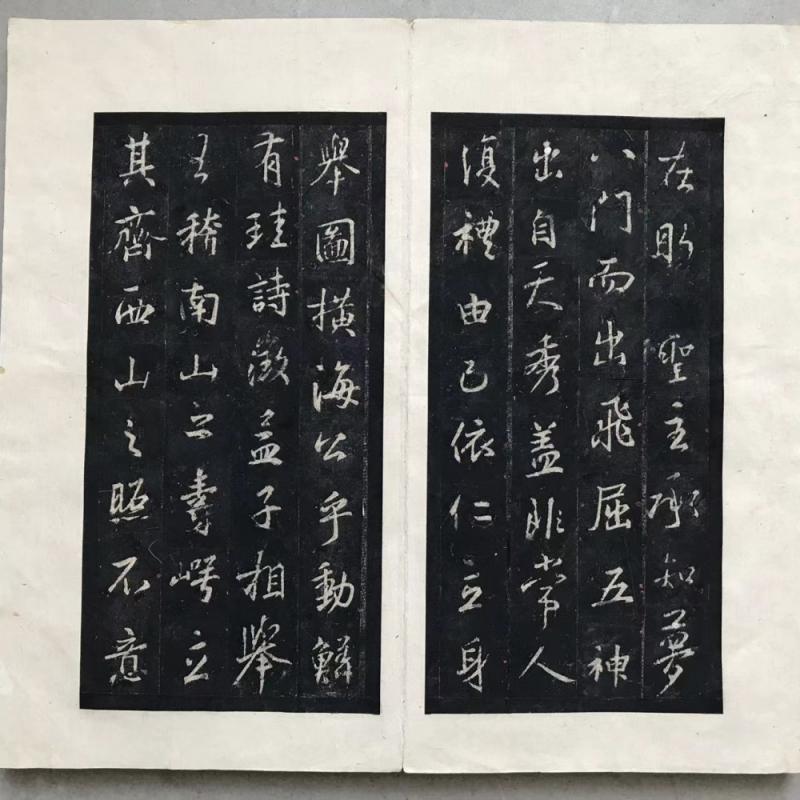 在 聖主承知夢
八門而出飛屈五神
出自天秀蓋非常人
復禮由己依仁立身
舉圖橫海公乎動鱗
有珪詩徵益子相舉
南山之壽崿立
其齊西山之照不意